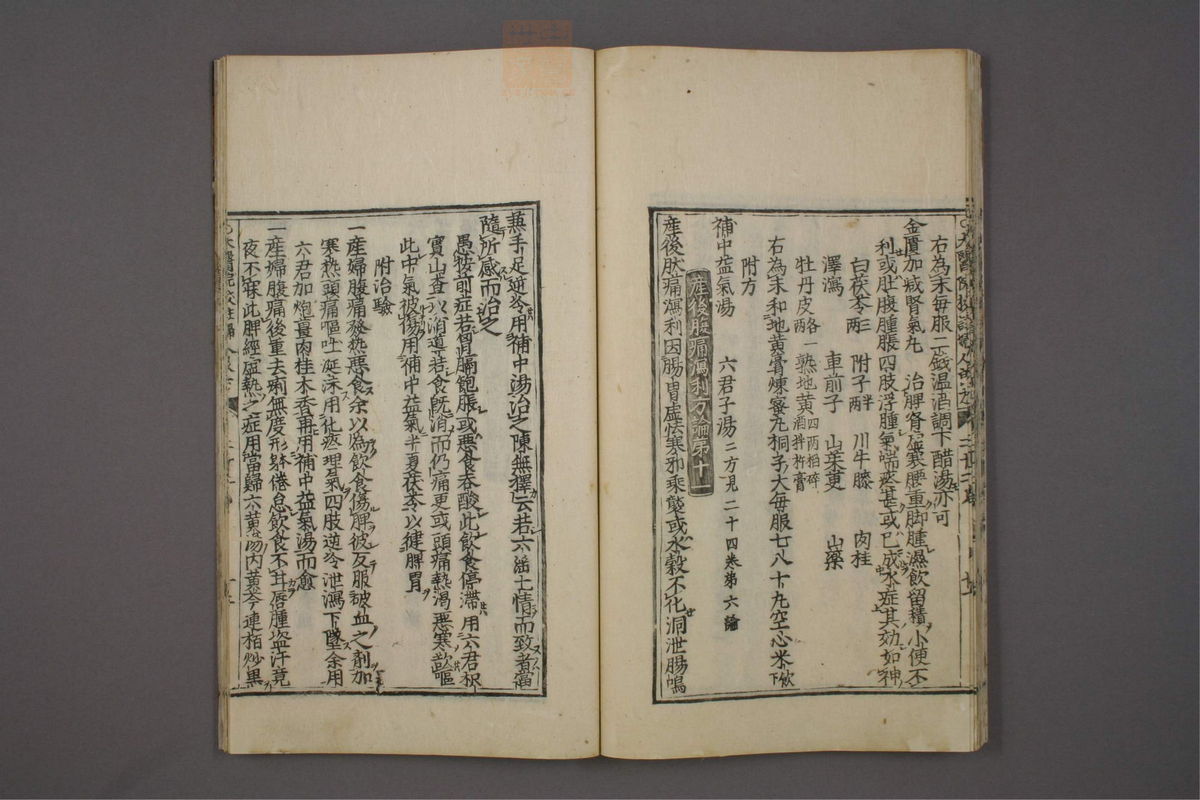 右為末毎服二錢温酒調下醋湯亦可
金匱加减腎氣丸　治脾腎虛寒腰重脚腫濕飲留積小便不
利或肚腹腫脹四肢浮腫氣喘痰甚或已成水症其効如神
白茯苓三兩　附子半兩　川牛膝　肉桂
澤瀉　車前子　山茱萸　山藥
牡丹皮各一兩　熟地黄四兩搯碎酒拌杵膏
右為末和地黄膏煉蜜丸桐子大毎服七八十丸空心米飲下
附方
補中益氣湯　六君子湯二方見二十四巻第六論
産後腹痛瀉利方論第十一
産後腹痛瀉利因腸胃虛怯寒邪乘襲或水穀不化洞泄腸鳴
兼手足逆冷用補中湯治之陳無擇云若六淫七情而致者當
隨所感而治之
愚按前症若胷膈飽脹或惡食吞酸此飲食停滯用六君枳
實山查以消導若食既消而仍痛更或頭痛熱渴惡寒欲嘔
此中氣被傷用補中益氣半夏茯苓以健脾胃
附治驗
一産婦腹痛發熱惡食余以為飲食傷脾彼反服破血之劑加
寒熱頭痛嘔吐涎沫用化痰理氣四肢逆冷泄瀉下墜余用
六君加炮薑肉桂木香再用補中益氣湯而愈
一産婦腹痛後重去痢無度形躰倦怠飲食不甘唇腫盗汗竟
夜不寐此脾經虛熱之症用當歸六黄湯内黄芩連栢炒黒